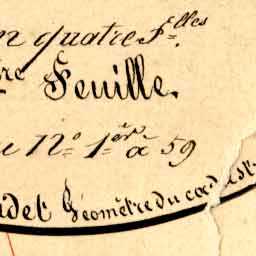 n quatre Flles.
re Feuille.
u No. 1er à 59
idet Géomètre du cadast